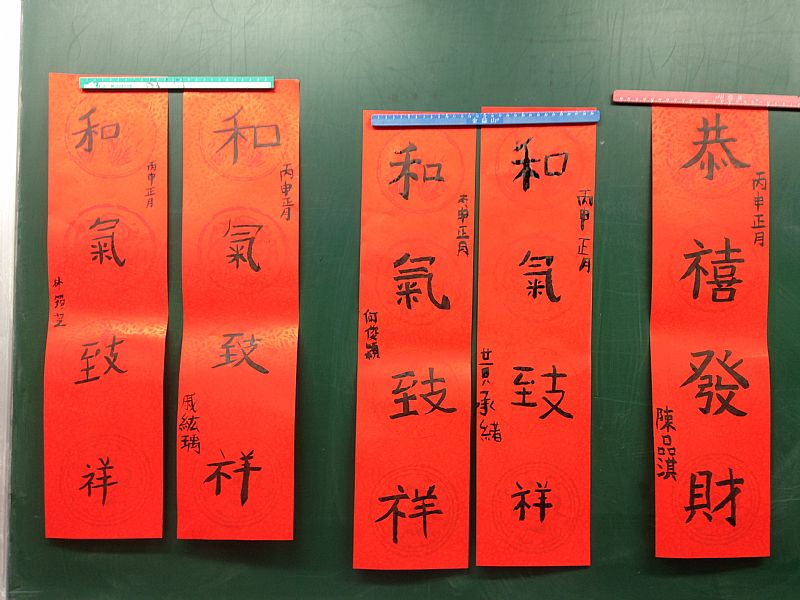 和氣致祥
丙申正月
和氣致祥
丙申正月
戚紘瑀
和氣致祥
丙申正月
何俊穎
和氣致祥
丙申正月
黃承緒
恭禧發財
丙申正月
陳品淇